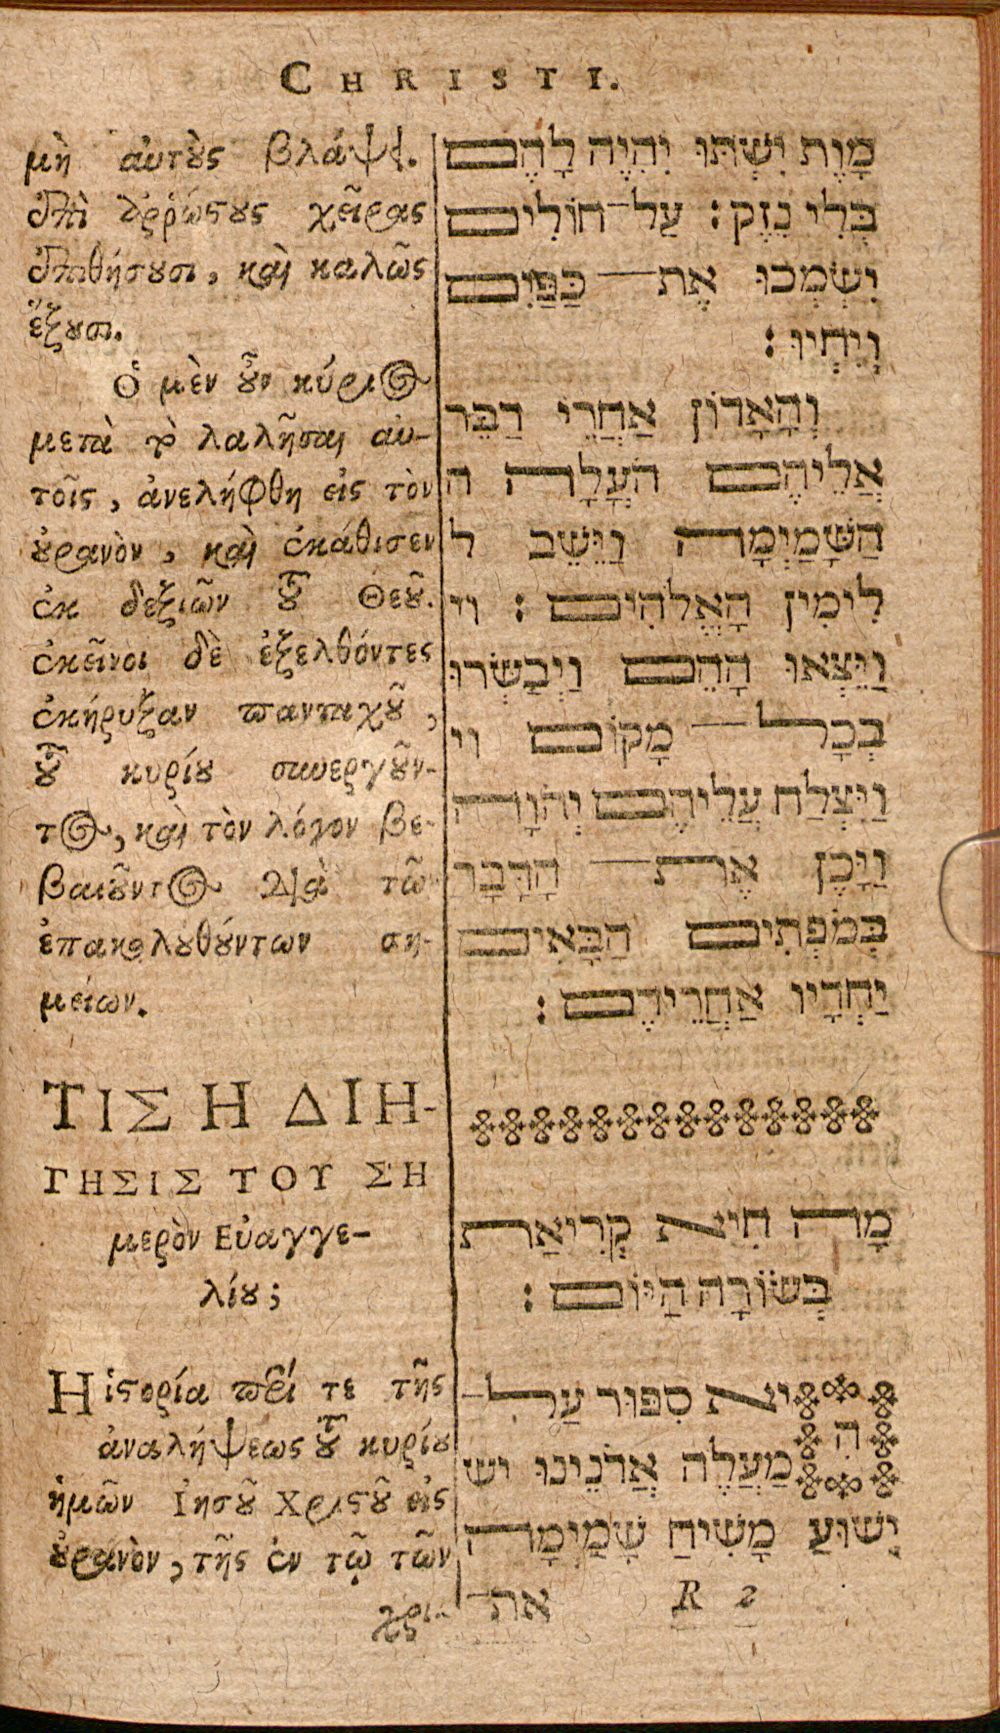 CHRISTI.
μὴ αὐτοὺς βλάψει.
ἐπὶ ἀῤῥώστους χεῖρας
ἐπιθήσουσι, καὶ καλῶς
ἕξουσι.
Ὁ μὲν οὖν κύριος
μετὰ τὸ λαλῆσαι αὐ-
τοῖς, ἀνελήφθη εἰς τὸν
οὐρανὸν, καὶ ἐκάθισεν
ἐκ δεξιῶν τοῦ Θεοῦ.
ἐκεῖνοι δὲ ἐξελθόντες
ἐκήρυξαν πανταχοῦ,
τοῦ κυρίου συνεργοῦν-
τος, καὶ τὸν λόγον βε-
βαιοῦντος διὰ τῶ
ἐπακολουθούντων ση-
μείων.
ΤΙΣ Η ΔΙΗ-
ΓΗΣΙΣ ΤΟΥ ΣΗ
μερὸν Εὐαγγε-
λίου;
Η ἱστορία περί τε τῆς
ἀναλήψεως τοῦ κυρίου
ἡμῶν Ἰησοῦ Χριστοῦ εἰς
οὐρανὸν, τῆς ἐν τῷ τῶν
χρι-
מָוֶת יִשְׁתּוּ יִהְיֶה לָהֶם
בְּלִי נֵזֶק: עַל־חוֹלִים
יִשְׂמְכוּ אֶת־ כַּפַּיִם
וְיִחְיוּ:
וְהָאָדוֹן אַחֲרֵי דַבֵּר
אֲלֵיהֶם הֹעֲלָה ה
הַשָּׁמַיְמָה וַיֵּשֶׁב ל
לִימִין הָאֱלֹהִים: וי
וַיֵּצְאוּ הָהֵם וַיְבַשְּׂרוּ
בְּכָל־ מָקוֹם וי
וַיִּצְלַח עֲלֵיהֶם יְהוָֹה
וַיָּכֶן אֶת־ הַדָּבָר
בְּמֹפְתִים הַבָּאִים
יַחְדָּיו אַחֲרֵיהֶם:
מָה הִיא קְרִיאַת
בְּשׂוֹרָה הַיּוֹם:
הִיא סִפּוּר עַל־
מַעֲלֶה אֲדֹנֵינוּ יש
יֵשׁוּעַ מָשִׁיחַ שָׁמַיְמָה
את־
R 2